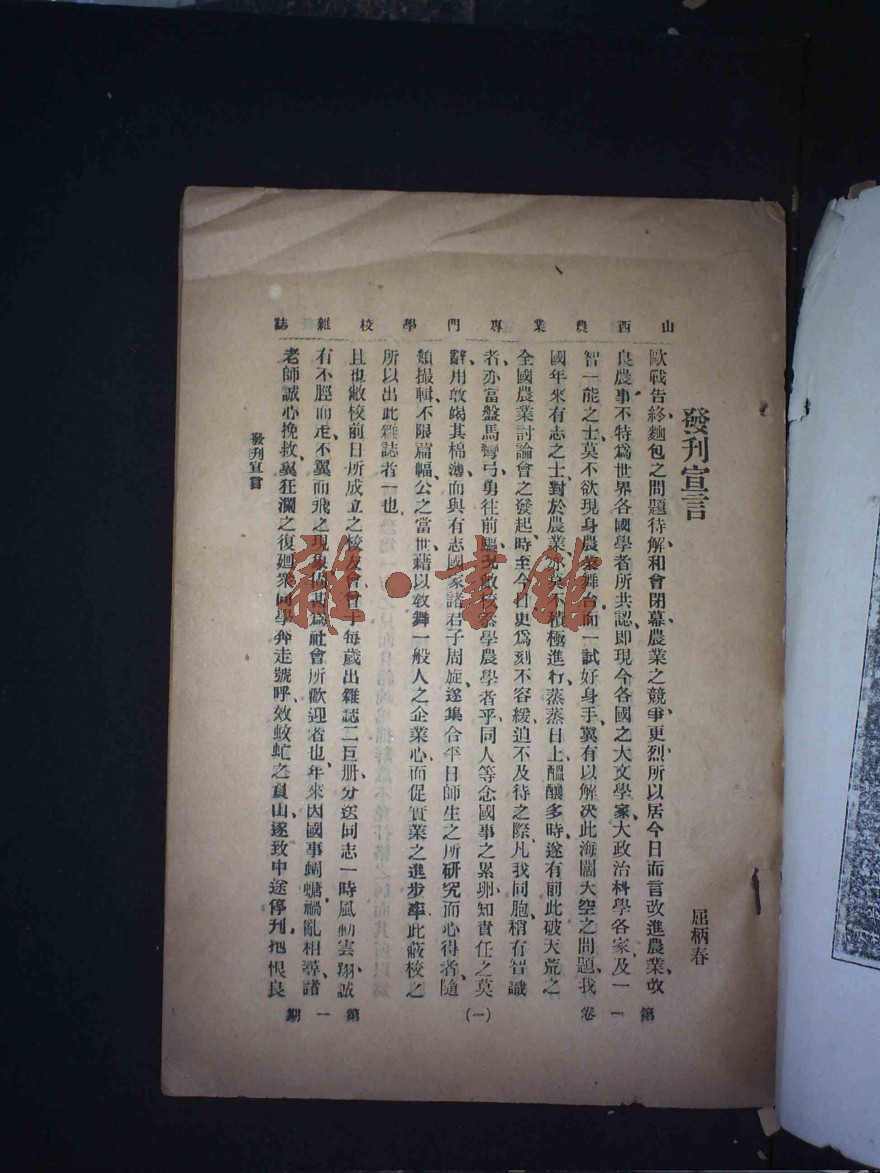 山西農業專門學校雜誌
發刊宣言
屈柄春
歐戰告終、麵包之問題待解、和會閉幕、農業之競爭更烈、所以居今日而言改進農業、改
良農事、不特爲世界各國學者所共認、即現今各國之大文學家、大政治科學各家、及一
智一能之士、莫不欲現身農業舞台、而一試好身手、冀有以解決此海闊天空之問題、我
國年來有志之士、對於農業、亦 積極進行、蒸蒸日上、醞釀多時、遂有前此破天荒之
全國農業討論會之發起、時至今日、更爲刻不容緩、迫不及待之際、凡我同胞、稍有智識
者、亦當盤馬彎弓、勇往前 、況敝校 學農學者乎、同人等念國事之累卵、知責任之莫
辭、用敢竭其棉薄、而與有志國家諸君子周旋、遂集合平日師生之所研究而心得者、隨
類撮輯、不限篇幅、公之當世、藉以敎舞一般人之企業心、而促實業之進步、率此蔽校之
所以出此雜誌者一也
且也敝校前日所成立之校友會、會于每歲出雜誌二巨册、分送同志、一時風動雲翔、誠
有不脛而走、不翼而飛之現象、 爲社會所歡迎者也、年來因國事蜩螗、禍亂相尋、諸
老師誠心挽救、冀狂瀾之復廻、衆同學奔走號呼、效蚊虻之負山、遂致中途停刋、抱恨良
發刊宣言
第一卷
(一)
第一期
雜·書館